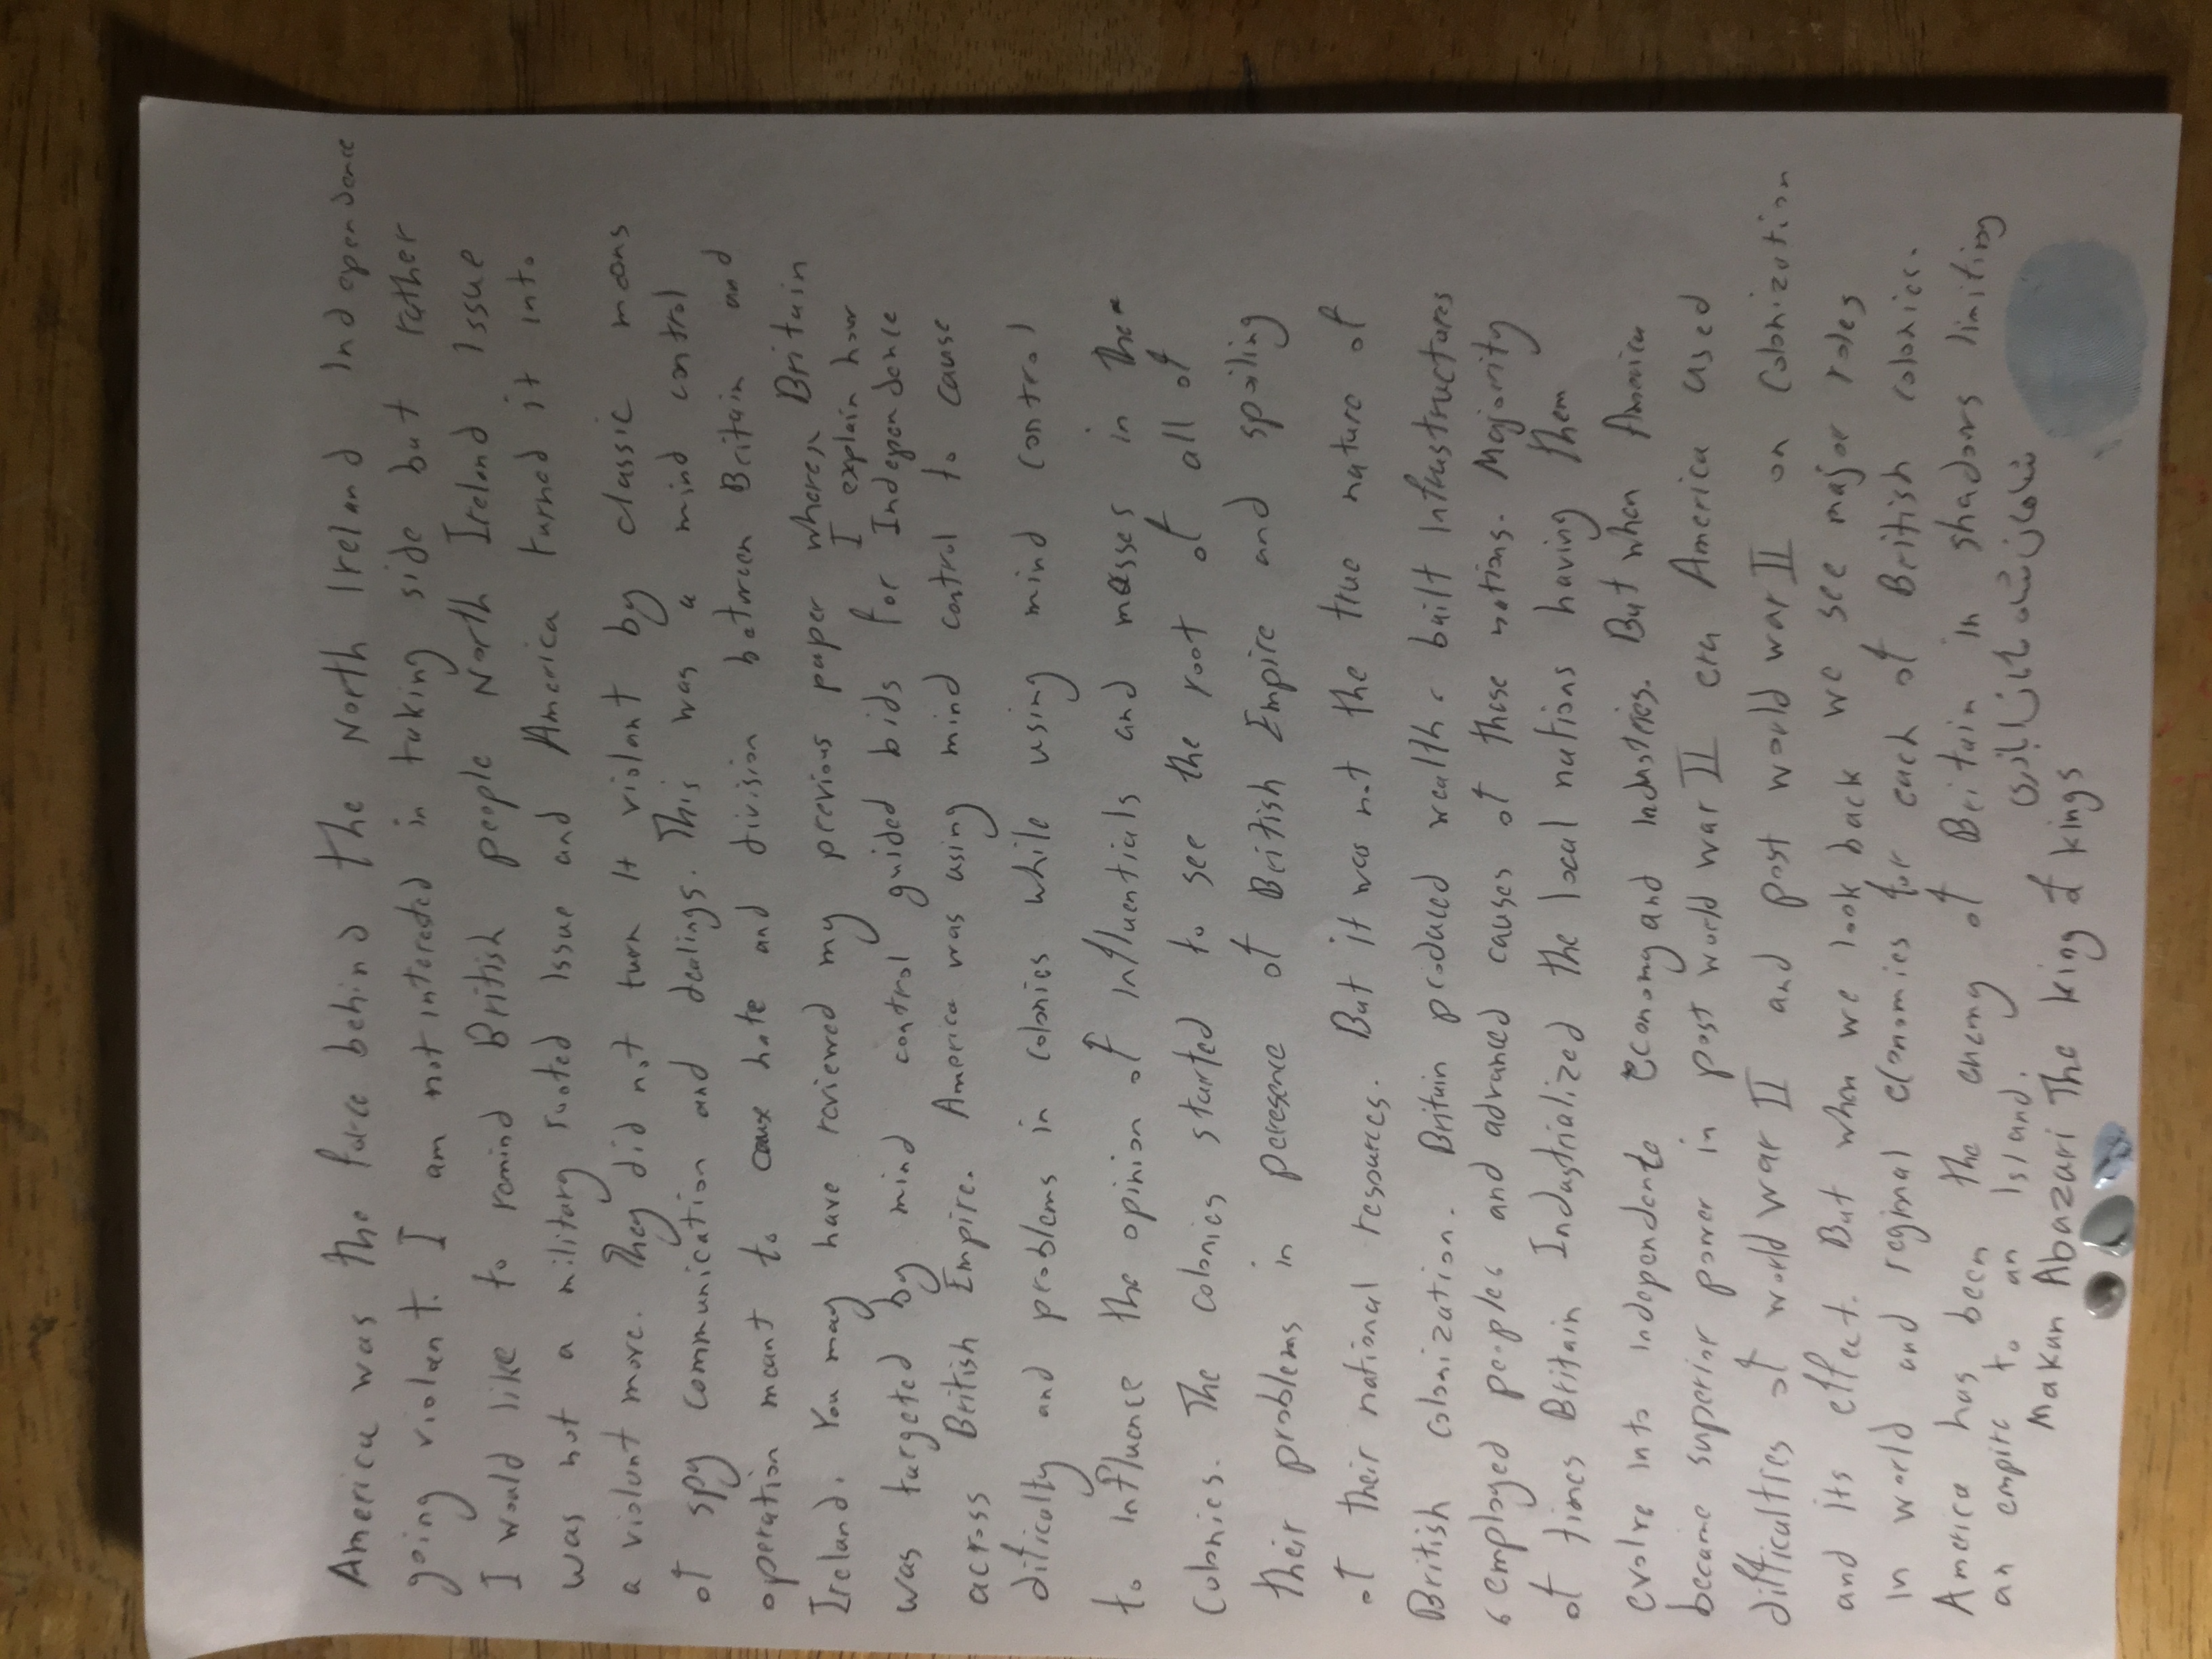 America was the force behind the North Ireland Independence
going violant. I am not interested in taking side but rather
I would like to remind British people North Ireland Issue
was not a military rooted Issue and America turned it into
a violant more. They did not turn It violant by classic means
of spy communication and dealings. This was a mind control
operation meant to cause hate and division between Britain and
Ireland. You may have reviewed my previous paper where Britain
I explain how
was targeted by mind control guided bids for Independence
across British Empire. America was using mind control to cause
dificulty and problems in colonies while using mind control
to Influence the opinion of Influentials and masses in the
Colonies. The colonies started to see the root of all of
their problems in peresence of British Empire and spoiling
of their national resources. But it was not the true nature of
British colonization. Britain produced wealth, built Infrustructures
, employed peoples and advanced causes of those nations. Majority
of times Britain Industrialized the local nations having them
evolve into independente economy and Industries. But when America
became superior power in post world war II era America used
difficulties of world war II and post world war II on colonization
and its effect. But when we look back we see major roles
in world and regional economies for each of British colonies.
America has been the enemy of Britain in shadows limiting
an empire to an Island.
Makan Abazari The king of kings